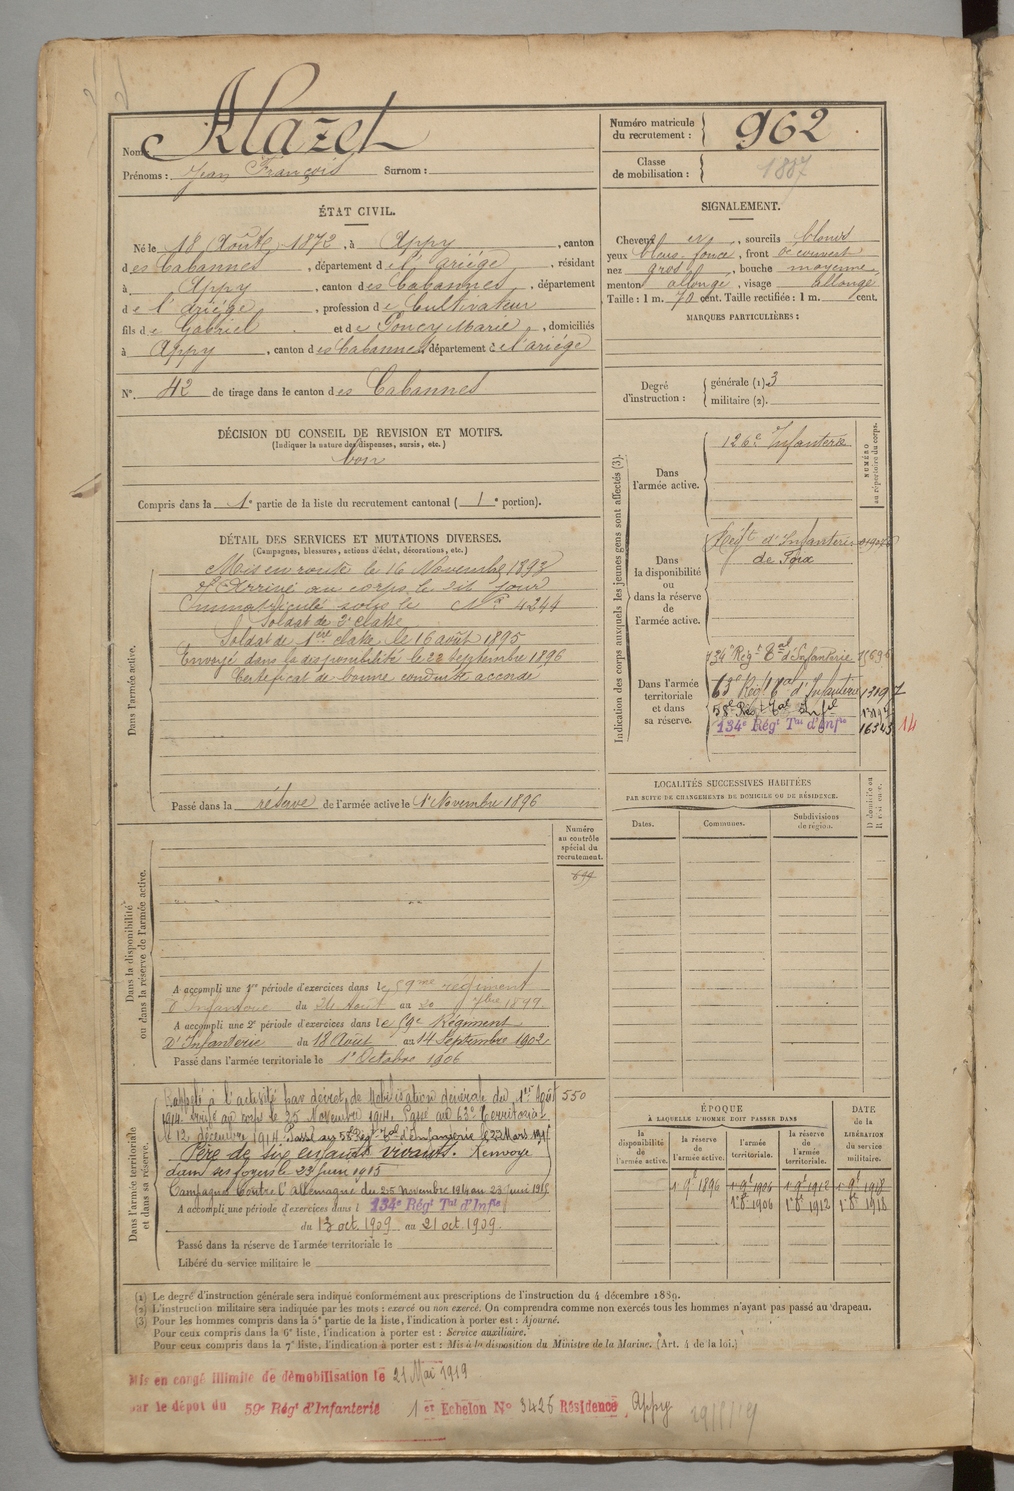 Nom: Alazet
Prénoms: Jean François Surnom:
Numéro matricule du recrutement: 962
Classe de mobilisation: 1887
ÉTAT CIVIL.
Né le 18 Août 1872, à Appy, canton
des Cabannes, département de l'ariège, résidant
à Appy, canton des Cabannes, département
de l'ariège, profession de Cultivateur
fils de Gabriel et de Goncy Marie, domiciliés
à Appy, canton des Cabannes, département de l'ariége
N° 42 de tirage dans le canton des Cabannes
DÉCISION DU CONSEIL DE REVISION ET MOTIFS.
(Indiquer la nature des dispenses, sursis, etc.)
bon
Compris dans la 1e partie de la liste du recrutement cantonal (1e portion).
SIGNALEMENT.
Cheveux, sourcils blonds
yeux bleus foncé, front découvert
nez gros, bouche moyenne
menton allongé, visage allongé
Taille: 1 m. 70 cent. Taille rectifiée: 1 m. cent.
MARQUES PARTICULIÈRES:
Degré d'instruction: générale (1). 3
militaire (2).
DÉTAIL DES SERVICES ET MUTATIONS DIVERSES.
(Campagnes, blessures, actions d'éclat, décorations, etc.)
Dans l'armée active.
Mis en route le 16 Novembre 1893
Arrivé au corps le dit jour
Immatriculé sous le N° 4244
Soldat de 2e classe
Soldat de 1ere classe le 16 août 1895
Envoyé dans la disponibilité le 22 Septembre 1896
Certificat de bonne conduite accordé
Passé dans la réserve de l'armée active le 1er Novembre 1896
Indication des corps auxquels les jeunes gens sont affectés (3).
NUMÉRO au répertoire du corps.
Dans l'armée active.
126e Infanterie
Dans la disponibilité ou dans la réserve de l'armée active.
Régt d'Infanterie
de Foix
Dans l'armée territoriale et dans sa réserve.
134e Régt Tal d'Infanterie
63e Régt Tal d'Infanterie 13197
58e Régt Tal Inf
134e Régt Tal d'Infie 16545 14
LOCALITÉS SUCCESSIVES HABITÉES
PAR SUITE DE CHANGEMENTS DE DOMICILE OU DE RÉSIDENCE.
Dates. Communes. Subdivisions de région. D domicile ou R résidence.
Numéro au contrôle spécial du recrutement.
Dans la disponibilité ou dans la réserve de l'armée active.
A accompli une 1re période d'exercices dans le 59me régiment
d'Infanterie du 24 Août au 20 7bre 1899.
A accompli une 2e période d'exercices dans le 59e Régiment
D'Infanterie du 18 Août au 14 Septembre 1902.
Passé dans l'armée territoriale le 1er Octobre 1906
Dans l'armée territoriale et dans sa réserve.
Rappelé à l'activité par décret de Mobilisation Générale du 1er Août 550
1914. Arrivé au corps le 25 Novembre 1914. Passé au 63e Territorial
le 12 décembre 1914. Passé au 58e Régt Tal d'Infanterie le 22 Mars 1915
Père de six enfants vivants. Renvoyé
dans ses foyers le 23 Juin 1915
Campagne contre l'Allemagne du 25 Novembre 1914 au 23 juin 1915
A accompli une période d'exercices dans l 134e Régt Tal d'Infie
du 13 oct. 1909 au 21 oct. 1909.
Passé dans la réserve de l'armée territoriale le
Libéré du service militaire le
ÉPOQUE
À LAQUELLE L'HOMME DOIT PASSER DANS
DATE DE LA LIBÉRATION du service militaire.
la disponibilité de l'armée active.
la réserve de l'armée active.
l'armée territoriale.
la réserve de l'armée territoriale.
1 9e 1896 1 9e 1906 1 9e 1912 1 9e 1918
1 8e 1906 1 8e 1912 1 8e 1918
(1) Le degré d'instruction générale sera indiqué conformément aux prescriptions de l'instruction du 4 décembre 1889.
(2) L'instruction militaire sera indiquée par les mots: exercé ou non exercé. On comprendra comme non exercés tous les hommes n'ayant pas passé au drapeau.
(3) Pour les hommes compris dans la 5e partie de la liste, l'indication à porter est: Ajourné.
Pour ceux compris dans la 6e liste, l'indication à porter est: Service auxiliaire.
Pour ceux compris dans la 7e liste, l'indication à porter est: Mis à la disposition du Ministre de la Marine. (Art. 4 de la loi.)
Mis en congé illimité de démobilisation le 21 Mai 1919
par le dépot du 59e Régt d'Infanterie 1er Echelon N° 3426 Résidence Appy